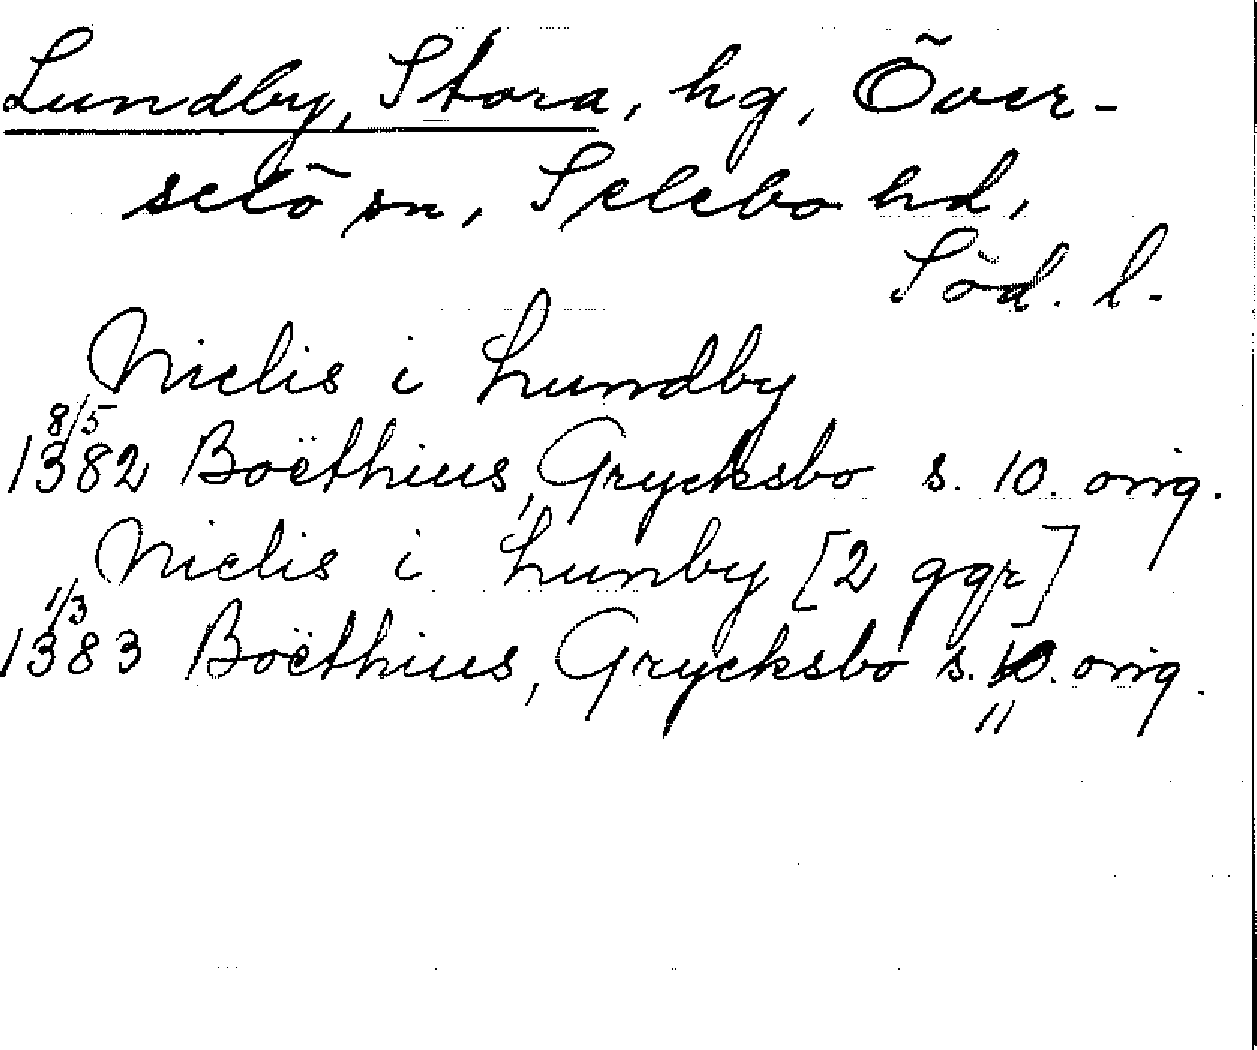 Lundby, Stora, hg, Över-
selö sn, Selebo hd,
Söd. l.
Niclis i Lundby
8/5
1382 Boëthius, Grycksbo s. 10. orig.
Niclis i Lunby [2 ggr]
1/3
1383 Boëthius, Grycksbo s. 10. orig.
11